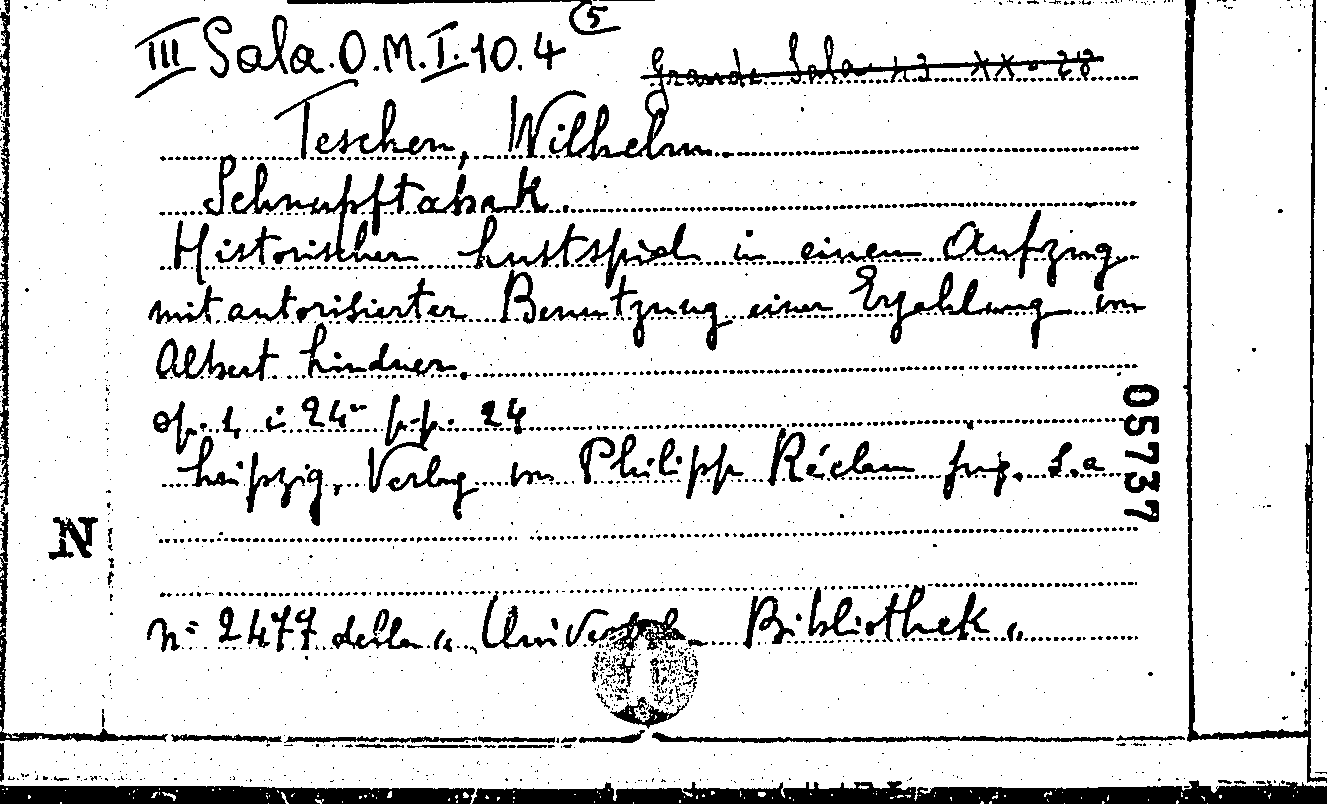 III Sala.O.M.I.10.4 (5)
Grande Sala 43 XX-28
Teschen, Wilhelm.
Schnupftabak.
Historischer Lustspiel in einem Aufzug
mit autorisierter Benutzung einer Erzahlung von
Albert Lindner.
op. 1, i 24° pp. 24
Leipzig, Verlag von Philipp Réclam jun. s.a
05737
N
n° 2477 della " Universal Bibliothek "